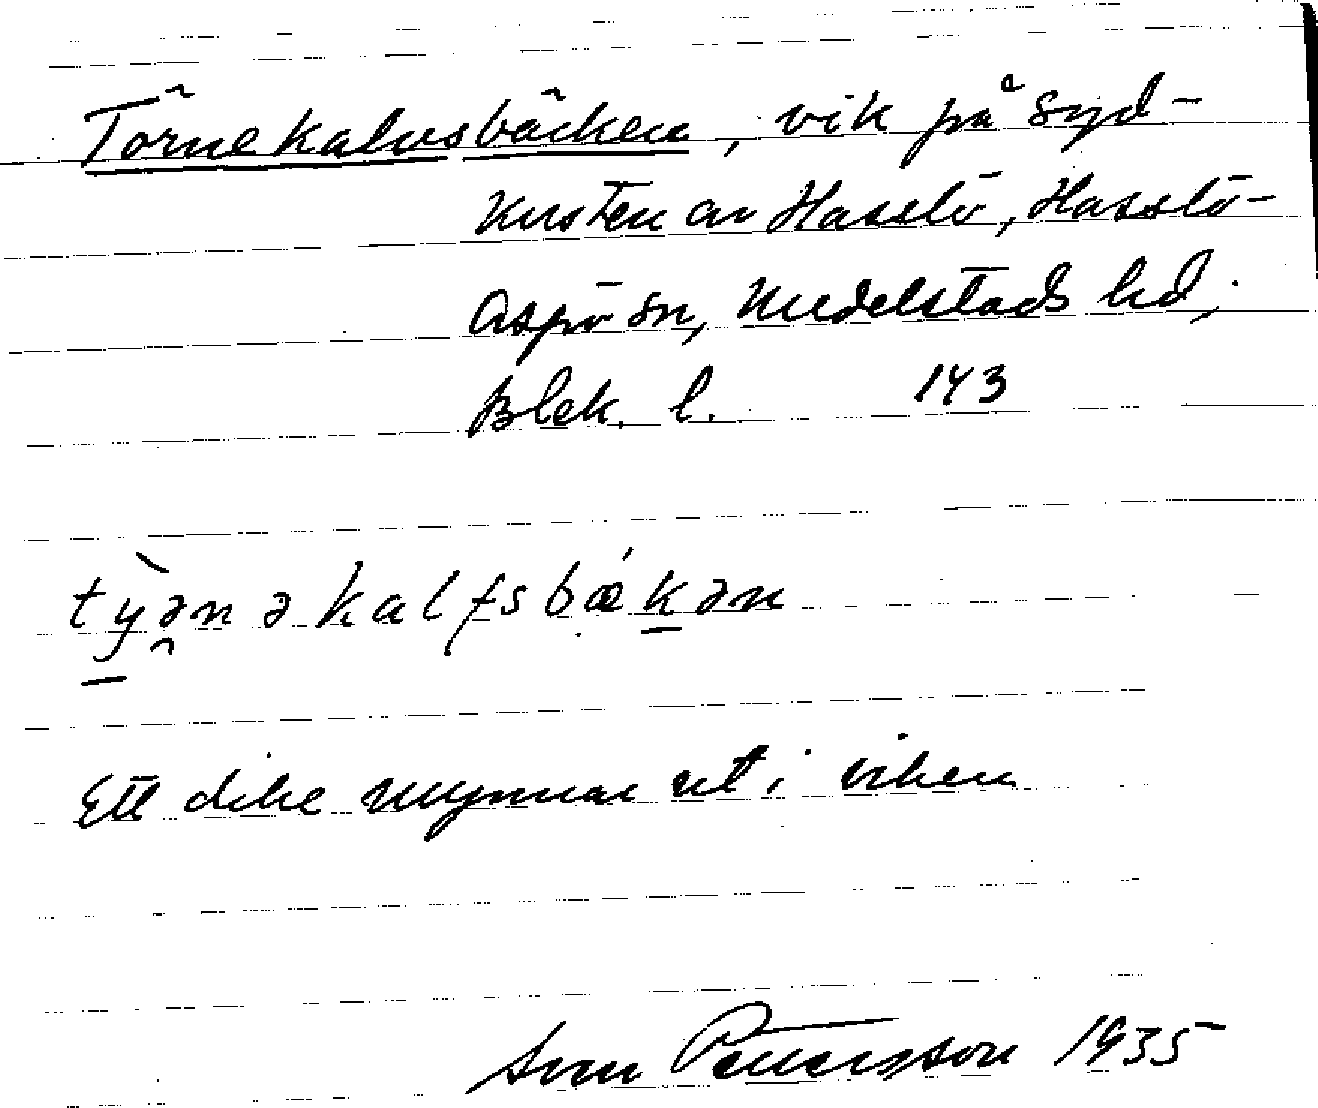 Törnekalvsbäcken, vik på syd-
kusten av Hasslö, Hasslö-
Aspö sn, Medelstads hd,
Blek. l. 143
tỳənəkalfsbǽkən
Ett dike mynnar ut i viken
Sven Pettersson 1935